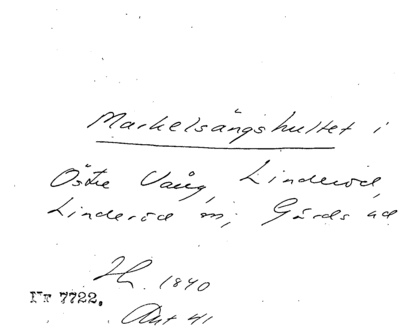 Markelsängshultet i
Östre Vång, Linderöd,
Linderöd sn; Gärds hd
H. 1840
Nr 7722.
Ant 41